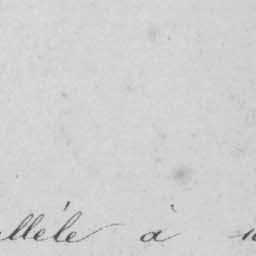 llèle à